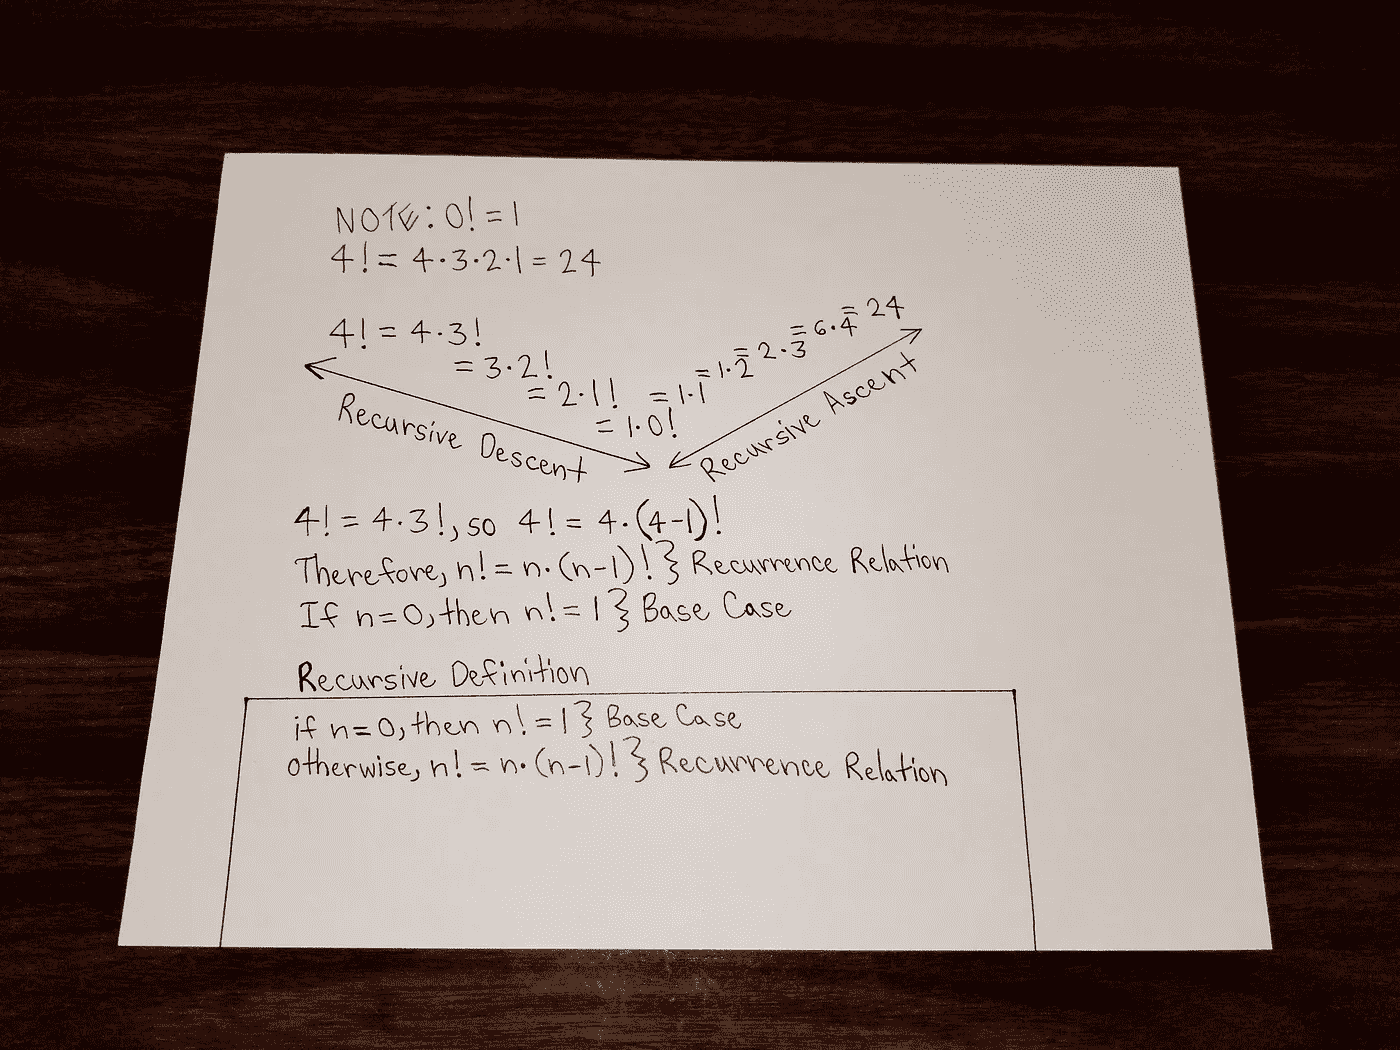 NOTE: 0! = 1
4! = 4·3·2·1 = 24
4! = 4·3!
= 3·2!
= 2·1!
= 1·0!
= 1·1
= 1·2
= 2·3
= 6·4
= 24
Recursive Descent
Recursive Ascent
4! = 4·3!, so 4! = 4·(4-1)!
Therefore, n! = n·(n-1)! } Recurrence Relation
If n=0, then n! = 1 } Base Case
Recursive Definition
if n=0, then n! = 1 } Base Case
otherwise, n! = n·(n-1)! } Recurrence Relation